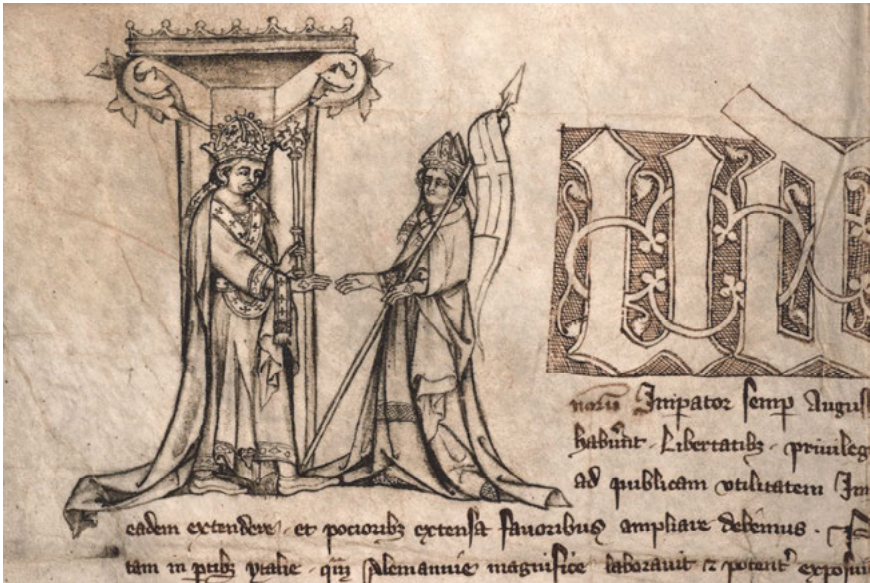 norum Impator semp Augus
habūnt. Libertatibz. privileg
ad publicam utilitatem Im
eadem extendere. et pocioribz extensa favoribus ampliare debemus.
tam in ptibz ytalie. qm Alemannie magnifice laboravit et potent exposui